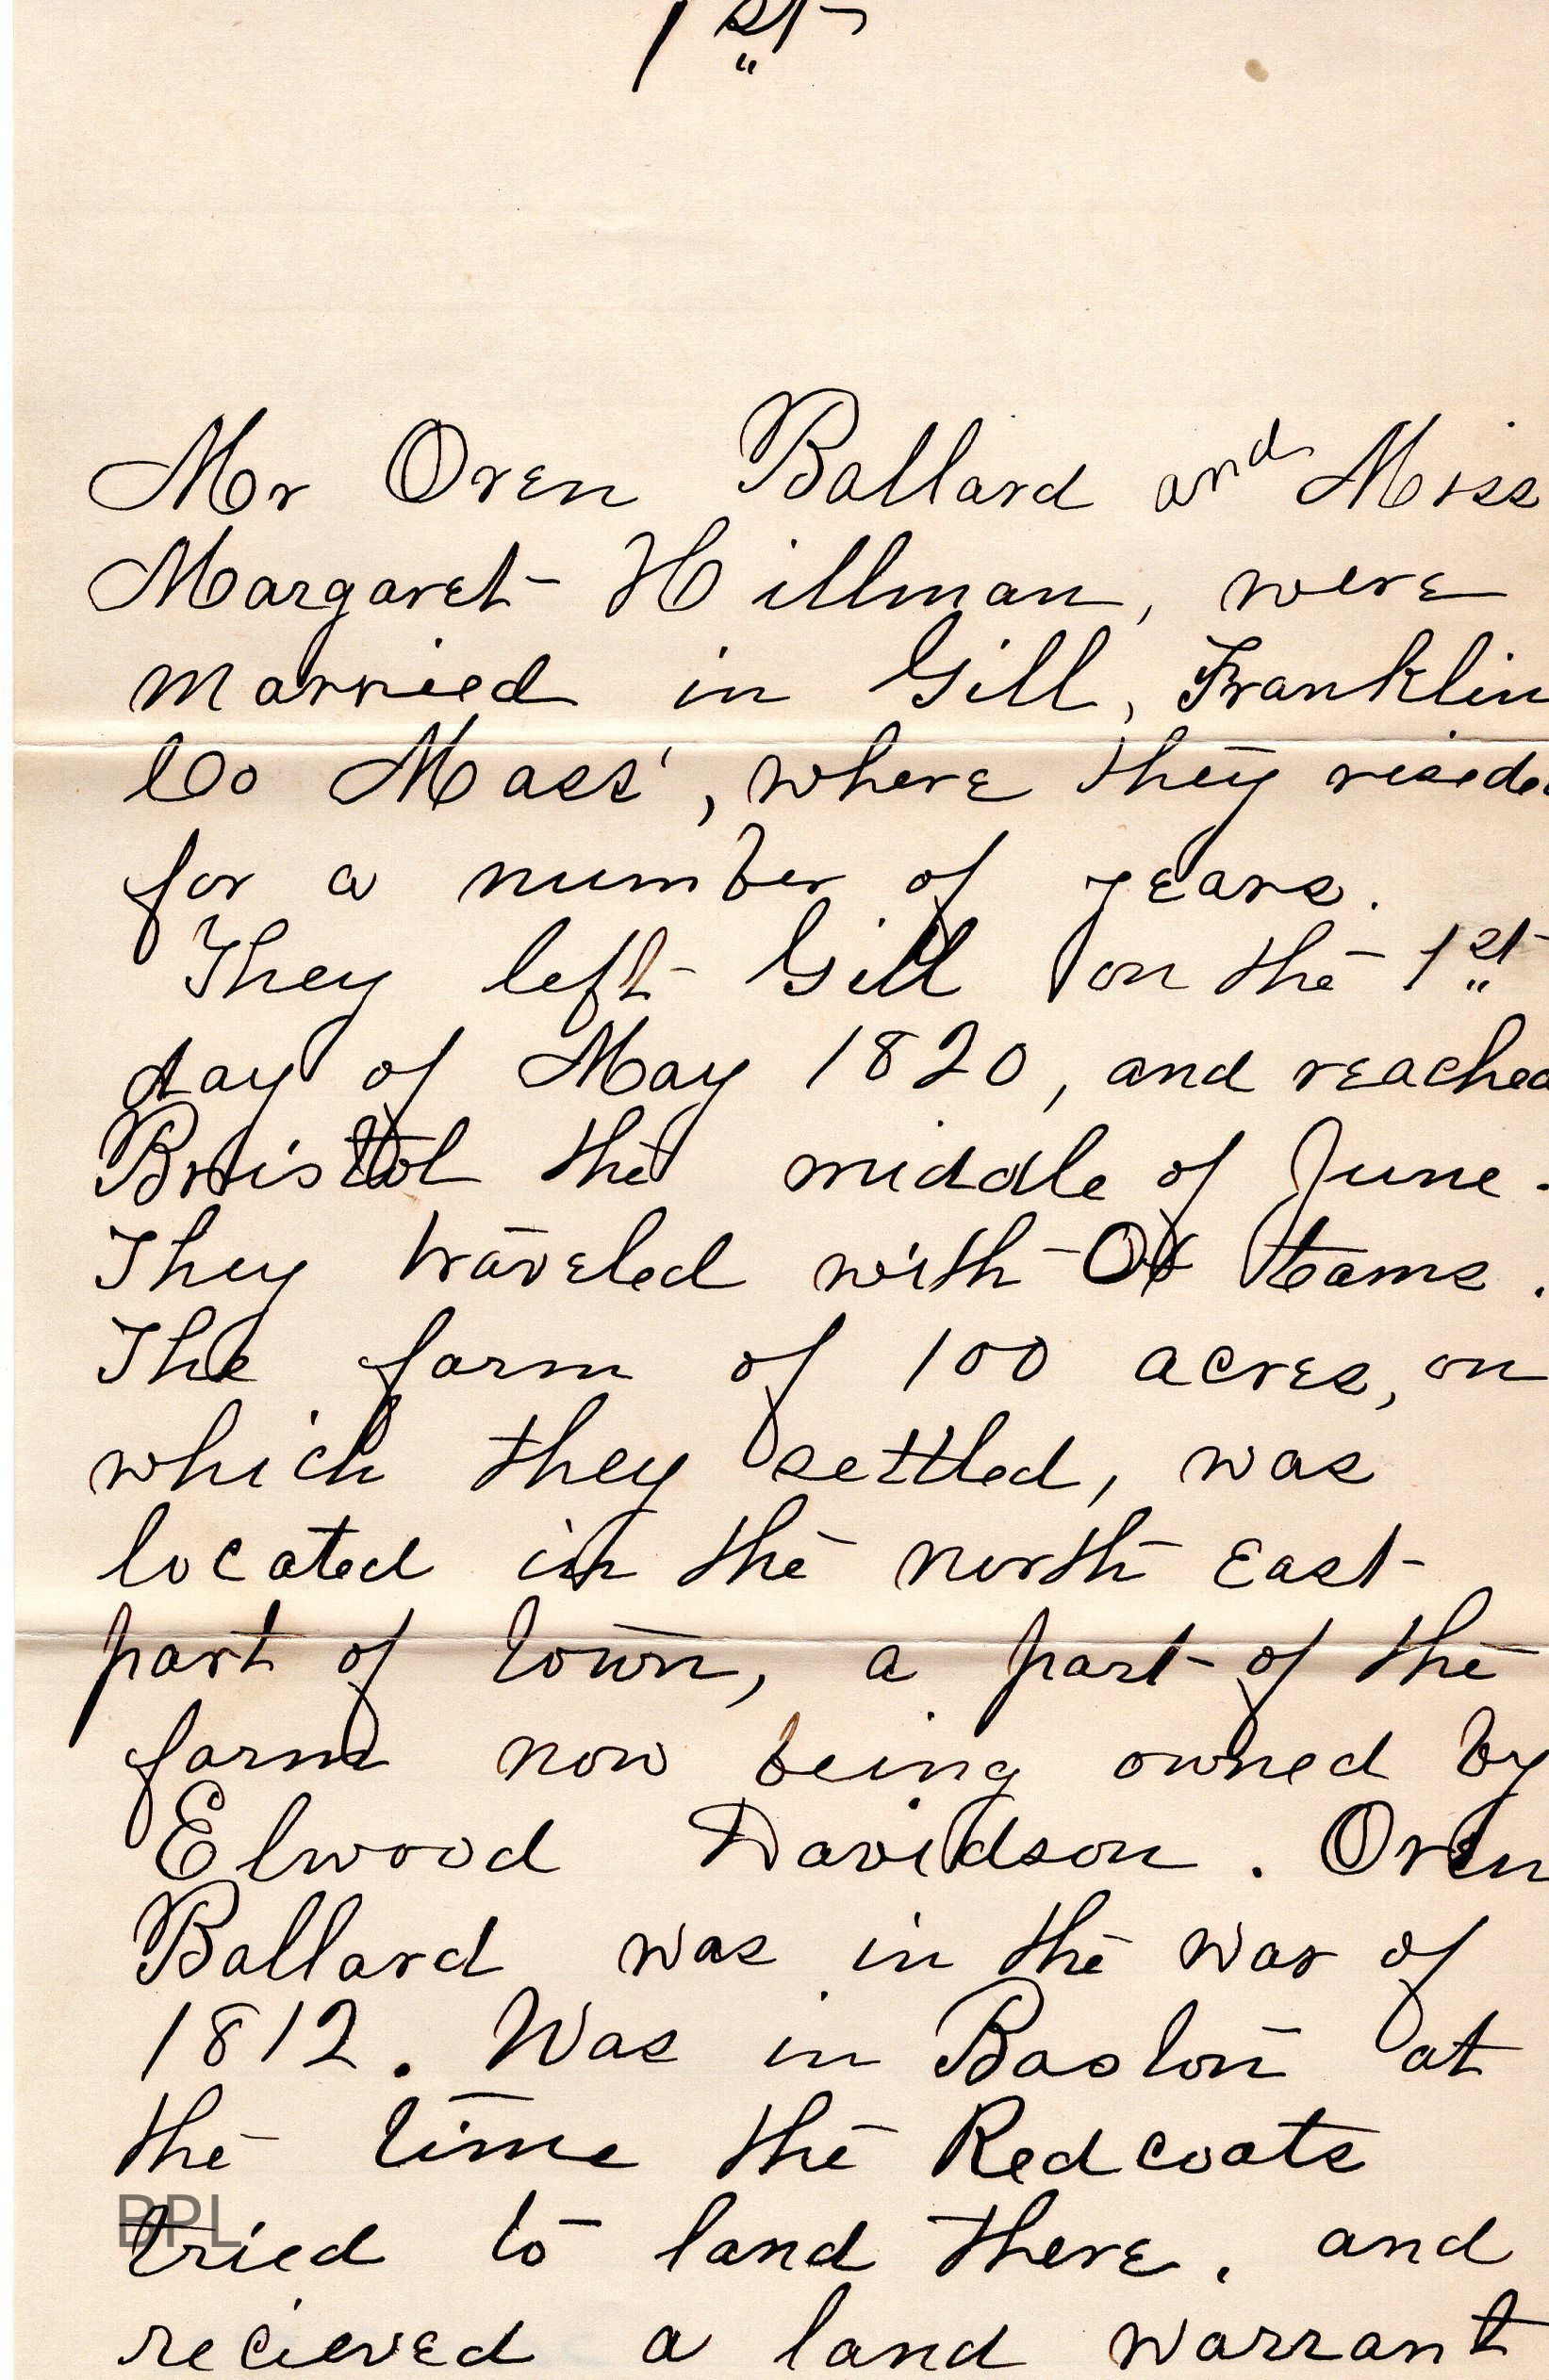 1st
Mr Oren Ballard and Miss
Margaret Hillman, were
married in Gill, Franklin
Co Mass', where they resided
for a number of years.
They left Gill on the 1st
day of May 1820, and reached
Bristol the middle of June.
They traveled with Ox teams.
The farm of 100 acres, on
which they settled, was
located in the north east
part of town, a part of the
farm now being owned by
Elwood Davidson. Oren
Ballard was in the war of
1812. Was in Boston at
the time the Redcoats
BPL
tried to land there. and
recieved a land warrant